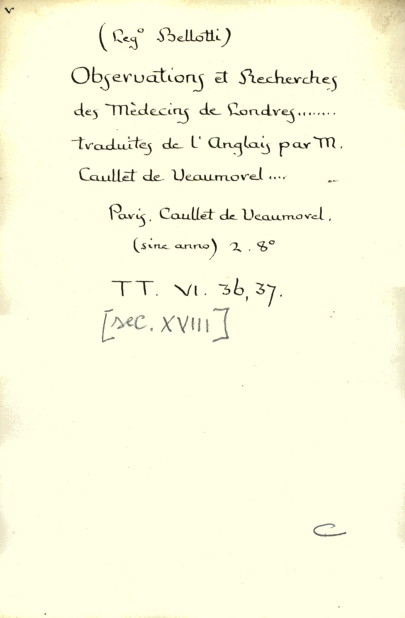 v
(Leg° Bellotti)
Observations et Recherches
des Mèdecins de Londres.......
traduites de l' Anglais par M.
Caullet de Veaumorel ....
Paris. Caullet de Veaumorel.
(sine anno) 2. 8°
TT. VI. 36, 37.
[sec. XVIII]
C